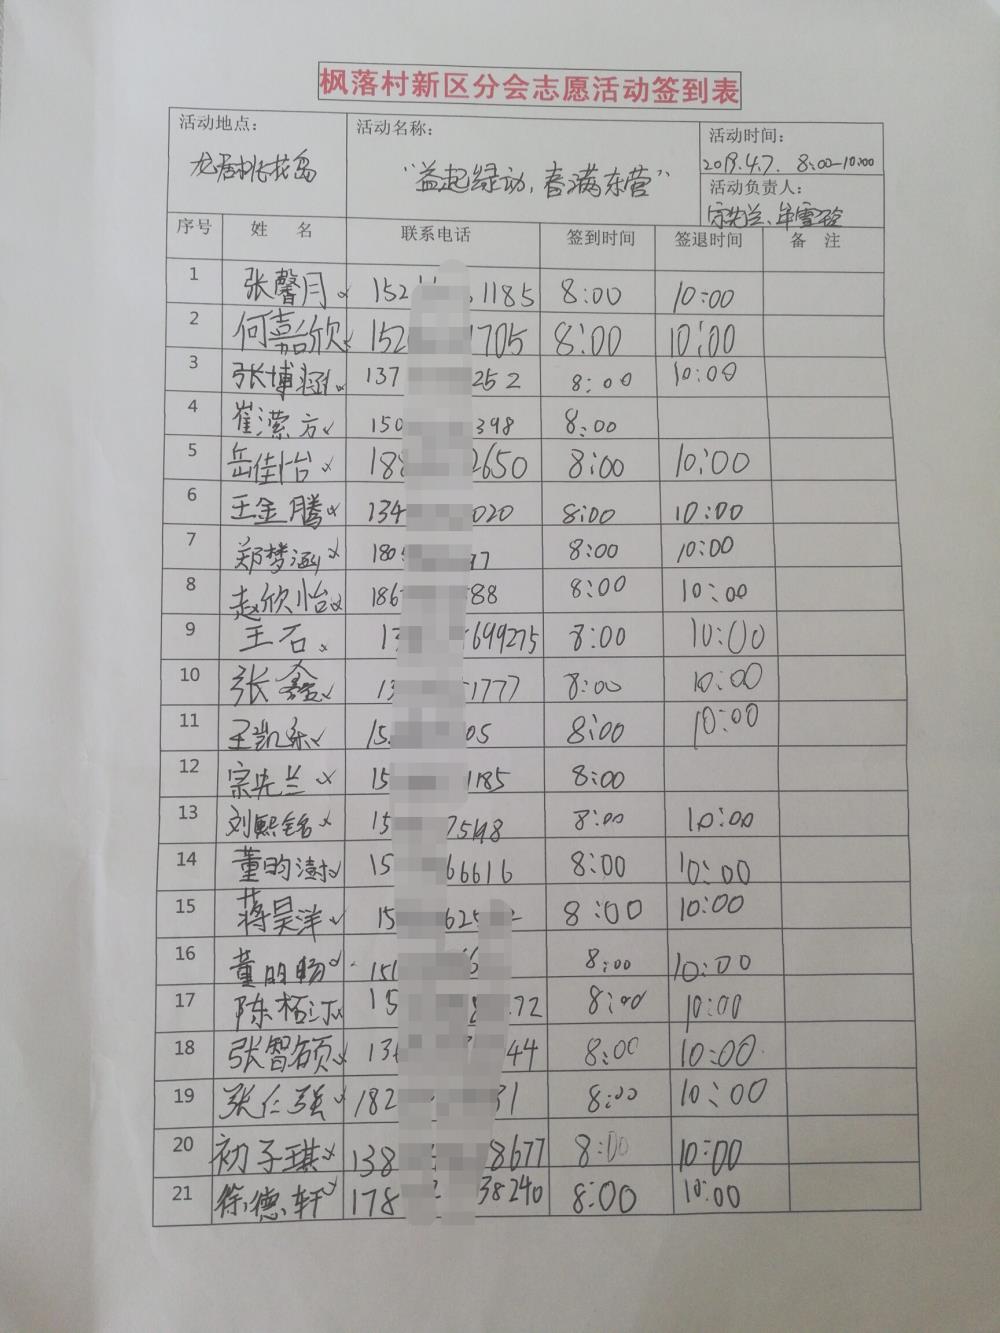 枫落村新区分会志愿活动签到表
活动地点：
龙居桃花岛
活动名称：
“益起绿动，春满东营”
活动时间：
2019.4.7. 8:00-10:00
活动负责人：
宗先兰、
序号 姓 名 联系电话 签到时间 签退时间 备 注
1 张馨月 152 1185 8:00 10:00
2 何嘉欣 152 1705 8:00 10:00
3 张博涵 137 252 8:00 10:00
4 崔潆方 150 398 8:00
5 岳佳怡 188 2650 8:00 10:00
6 王金腾 134 020 8:00 10:00
7 郑梦涵 180 97 8:00 10:00
8 赵欣怡 186 88 8:00 10:00
9 王石 13 699275 8:00 10:00
10 张鑫 13 1777 8:00 10:00
11 王凯乐 15 05 8:00 10:00
12 宗先兰 15 1185 8:00
13 刘熙铭 15 75148 8:00 10:00
14 董昀澍 15 66616 8:00 10:00
15 蒋昊洋 15 625 2 8:00 10:00
16 董昀畅 151 6 8:00 10:00
17 陈柘汀 15 8 72 8:00 10:00
18 张智硕 13 44 8:00 10:00
19 张仁强 182 31 8:00 10:00
20 初子琪 138 8677 8:00 10:00
21 徐德轩 178 2 38240 8:00 10:00